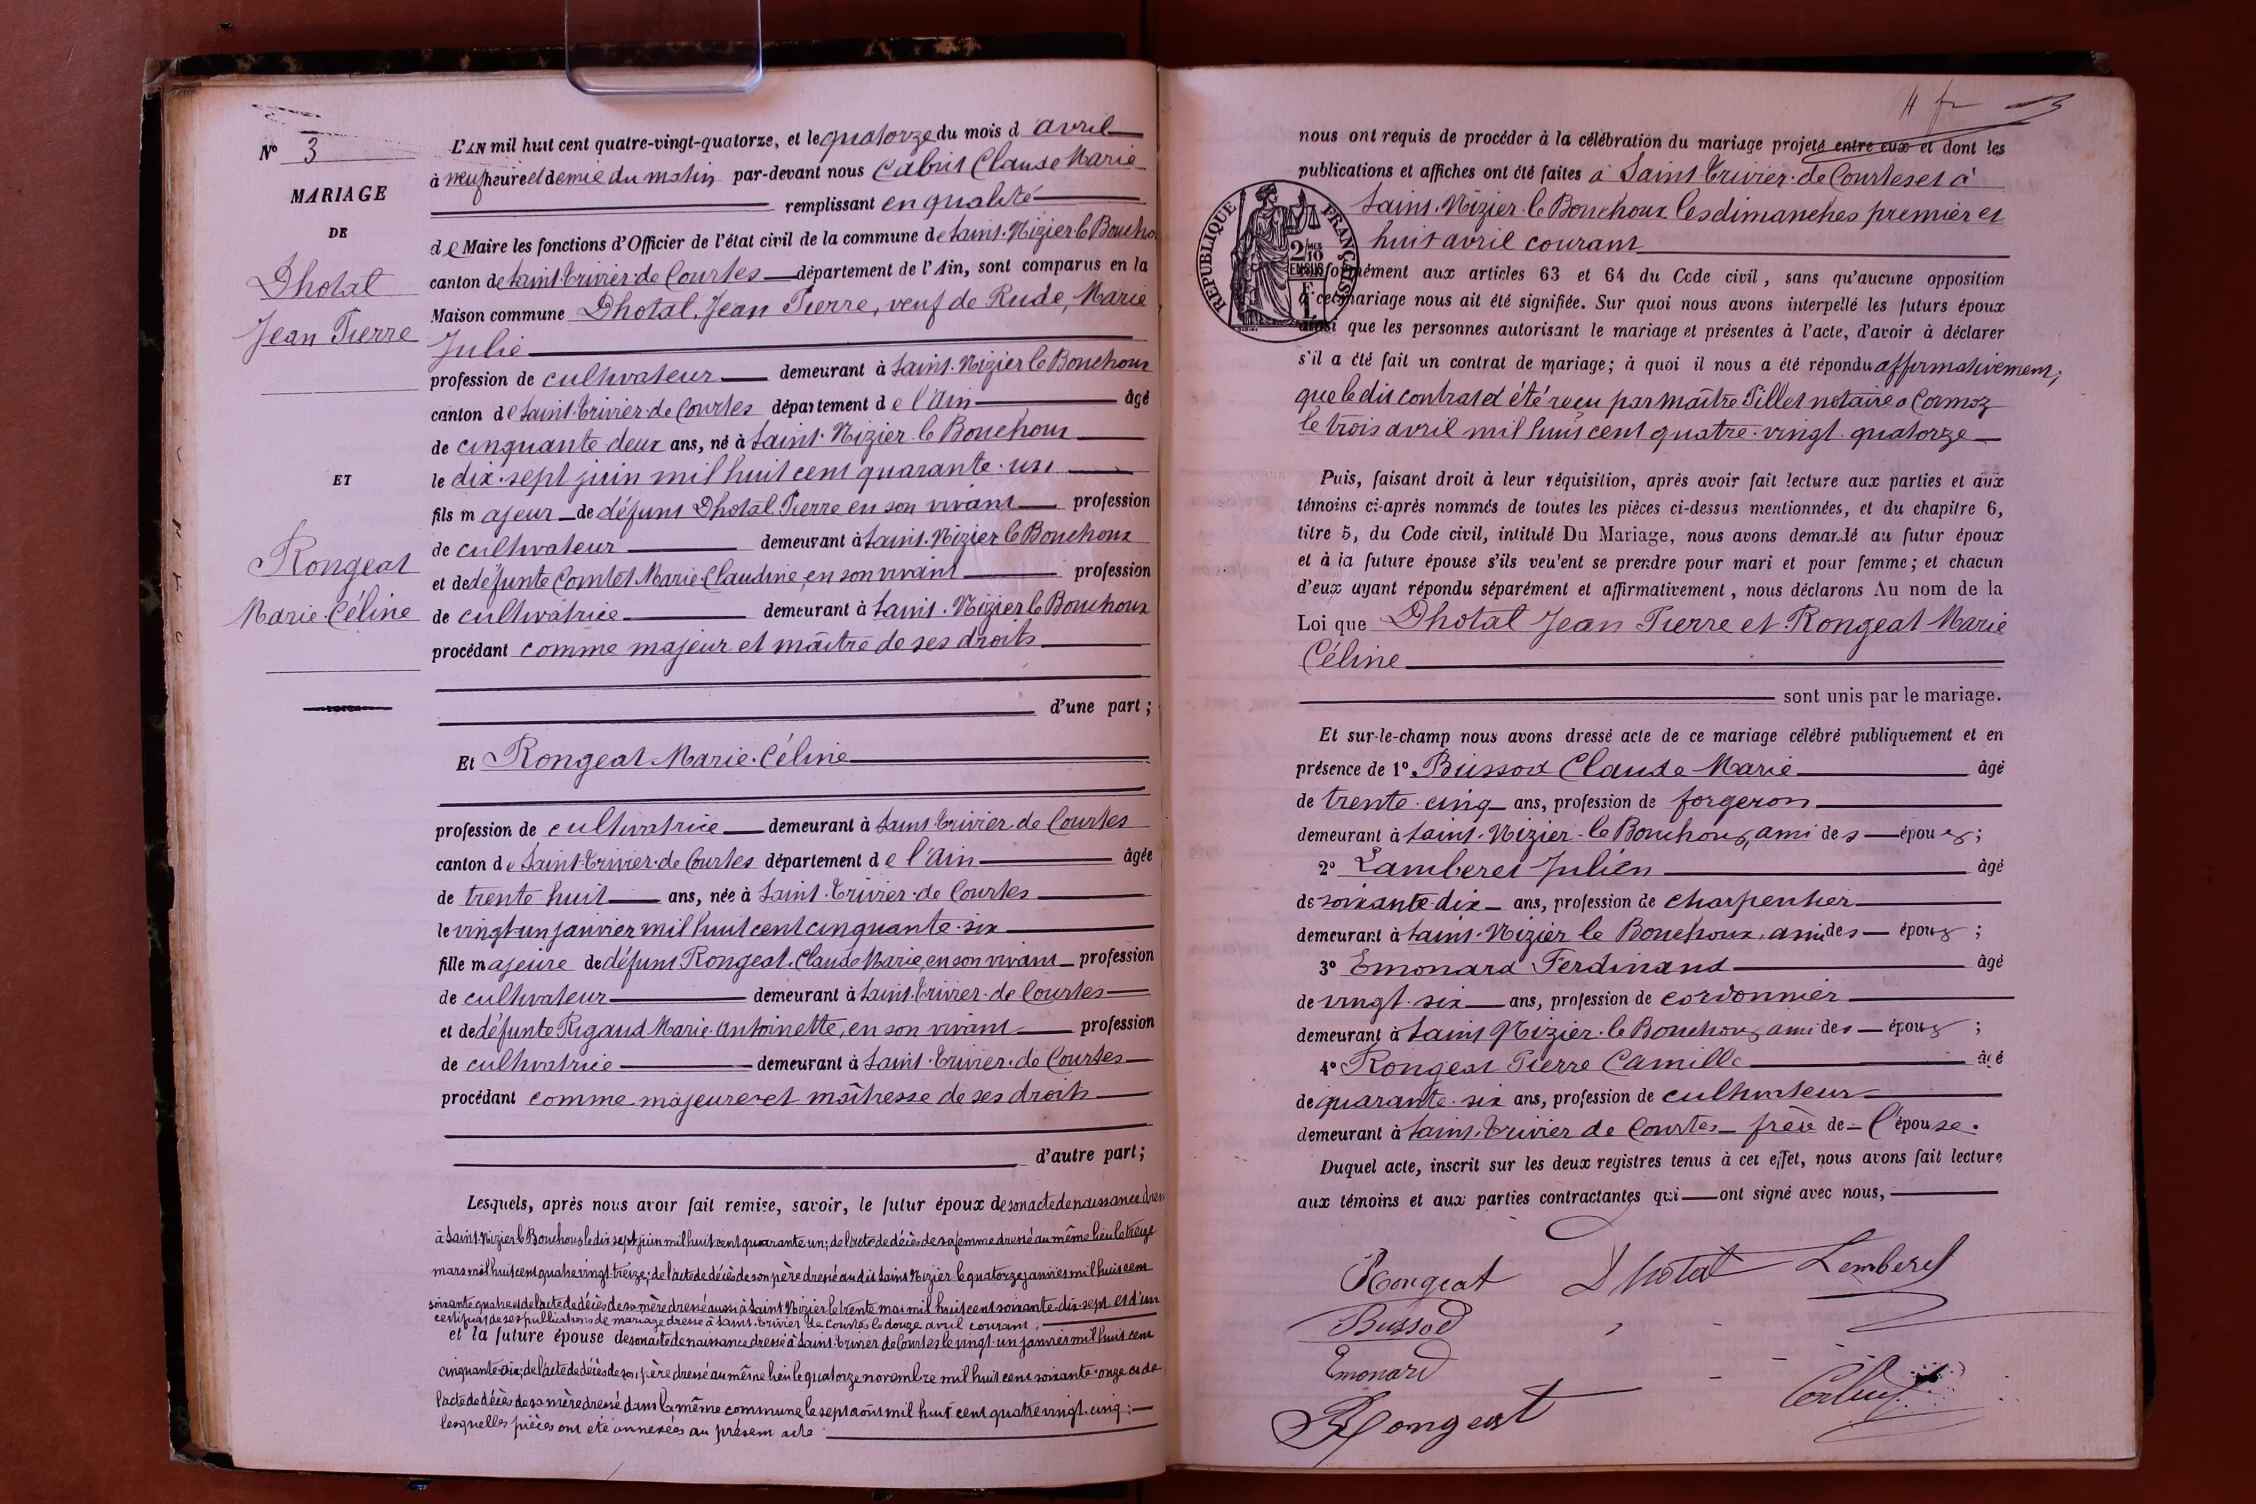 N° 3
MARIAGE
DE
Dhotal
Jean Pierre
ET
Rongeat
Marie-Céline
L'AN mil huit cent quatre-vingt-quatorze, et le quatorze du mois d avril
à neuf heure et demie du matin par-devant nous Cabut Claude Marie
remplissant en qualité
de Maire les fonctions d'Officier de l'état civil de la commune de Saint-Nizier-le-Boucho
canton de Saint-Trivier-de-Courtes département de l'Ain, sont comparus en la
Maison commune Dhotal, Jean Pierre, veuf de Rude, Marie
Julie
profession de cultivateur demeurant à Saint-Nizier le Bouchoux
canton de Saint-Trivier-de-Courtes département de l'Ain âgé
de cinquante deux ans, né à Saint-Nizier le Bouchoux
le dix-sept juin mil huit cent quarante-un
fils majeur de défunt Dhotal Pierre en son vivant profession
de cultivateur demeurant à Saint-Nizier le Bouchoux
et de défunte Comtet Marie-Claudine, en son vivant profession
de cultivatrice demeurant à Saint-Nizier le Bouchoux
procédant comme majeur et maître de ses droits
d'une part ;
Et Rongeat Marie-Céline
profession de cultivatrice demeurant à Saint-Trivier-de Courtes
canton de Saint-Trivier-de-Courtes département de l'Ain âgée
de trente huit ans, née à Saint-Trivier-de Courtes
le vingt-un janvier mil huit cent cinquante-six
fille majeure de défunt Rongeat, Claude Marie, en son vivant profession
de cultivateur demeurant à Saint-Trivier-de Courtes
et de défunte Rigaud Marie-Antoinette, en son vivant profession
de cultivatrice demeurant à Saint-Trivier-de Courtes
procédant comme majeure et maîtresse de ses droits
d'autre part ;
Lesquels, après nous avoir fait remise, savoir, le futur époux de son acte de naissance dressé
à Saint-Nizier le Bouchoux le dix sept juin mil huit cent quarante un ; de l'acte de décès de sa femme dressé au même lieu le treize
mars mil huit cent quatre vingt treize ; de l'acte de décès de son père dressé au dit Saint Nizier le quatorze janvier mil huit cent
soixante quatre et de l'acte de décès de sa mère dressé aussi à Saint Nizier le trente mai mil huit cent soixante-dix-sept et d'un
certificat de ses publications de mariage dressé à Saint-Trivier de Courtes le douze avril courant ;
et la future épouse de son acte de naissance dressé à Saint-Trivier de Courtes le vingt-un janvier mil huit cent
cinquante-six ; de l'acte de décès de son père dressé au même lieu le quatorze novembre mil huit cent soixante-onze et de
l'acte de décès de sa mère dressé dans la même commune le sept août mil huit cent quatre vingt-cinq ;
lesquelles pièces ont été annexées au présent acte
4 fr
nous ont requis de procéder à la célébration du mariage projeté entre eux et dont les
publications et affiches ont été faites à Saint-Trivier-de Courtes et à
Saint-Nizier-le Bouchoux les dimanches premier et
huit avril courant
conformément aux articles 63 et 64 du Code civil, sans qu'aucune opposition
à cet mariage nous ait été signifiée. Sur quoi nous avons interpellé les futurs époux
ainsi que les personnes autorisant le mariage et présentes à l'acte, d'avoir à déclarer
s'il a été fait un contrat de mariage ; à quoi il nous a été répondu affirmativement ;
que le dit contrat a été reçu par maître Pillet notaire à Cormoz
le trois avril mil huit cent quatre-vingt-quatorze
RÉPUBLIQUE FRANÇAISE
2/10
EN SUS
Puis, faisant droit à leur réquisition, après avoir fait lecture aux parties et aux
témoins ci-après nommés de toutes les pièces ci-dessus mentionnées, et du chapitre 6,
titre 5, du Code civil, intitulé Du Mariage, nous avons demandé au futur époux
et à la future épouse s'ils veulent se prendre pour mari et pour femme ; et chacun
d'eux ayant répondu séparément et affirmativement, nous déclarons Au nom de la
Loi que Dhotal Jean Pierre et Rongeat Marie
Céline
sont unis par le mariage.
Et sur-le-champ nous avons dressé acte de ce mariage célébré publiquement et en
présence de 1° Bussod Claude Marie âgé
de trente-cinq ans, profession de forgeron
demeurant à Saint-Nizier-le Bouchoux, ami des époux ;
2° Lamberet Julien âgé
de soixante-dix ans, profession de charpentier
demeurant à Saint-Nizier le Bouchoux, ami des époux ;
3° Emonard Ferdinand âgé
de vingt-six ans, profession de cordonnier
demeurant à Saint Nizier-le Bouchoux ami des époux ;
4° Rongeat Pierre Camille âgé
de quarante-six ans, profession de cultivateur
demeurant à Saint-Trivier de Courtes frère de l'épouse.
Duquel acte, inscrit sur les deux registres tenus à cet effet, nous avons fait lecture
aux témoins et aux parties contractantes qui ont signé avec nous,
Rongeat Dhotal Lemberet
Bussod
Emonard
Rongeat